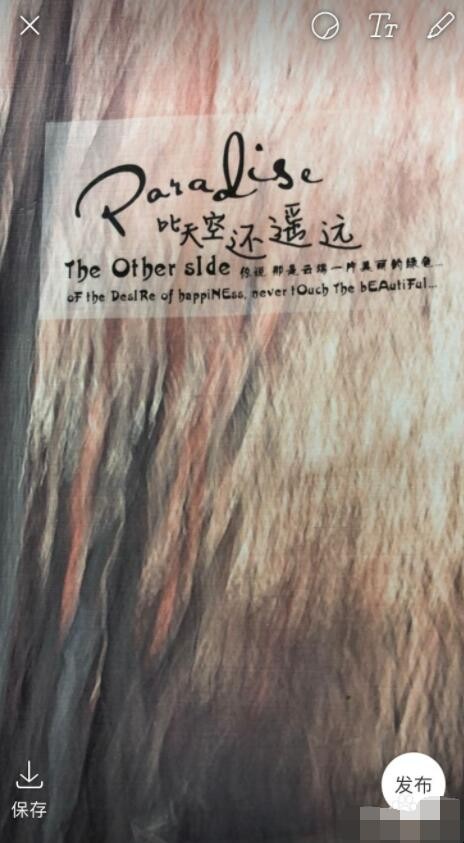 Tт
Paradise
比天空还遥远
The Other sIde 你说 那是云端一片美丽的绿色...
oF the DesIRe of happiNEss, never tOuch The bEAutiFul...
保存
发布